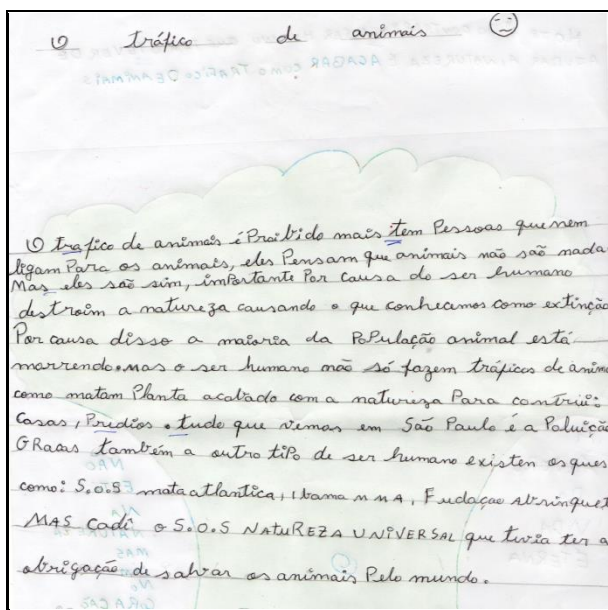 O tráfico de animais
O trafico de animais é Proibido mais tem Pessoas que nem
ligam Para os animais, eles Pensam que animais não são nada
Mas eles são sim, importante Por causa do ser humano
destroim a natureza causando o que conhecemos como extinção
Por causa disso a maioria da PoPulação animal está
morrendo. mas o ser humano não só fazem tráficos de anima
como matam Planta acabado com a natureza Para contriui:
Casas, Predios. tudo que vemos em São Paulo é a Poluição
GRacas também a outro tiPo de ser humano existen os ques
como: S.O.S mata atlantica, Ibama MMA, Fudação Abrinquet
MAS Cadê o S.O.S NAtuREZA UNIVERSAL que tivia ter a
obrigação de salvar os animais Pelo mundo.